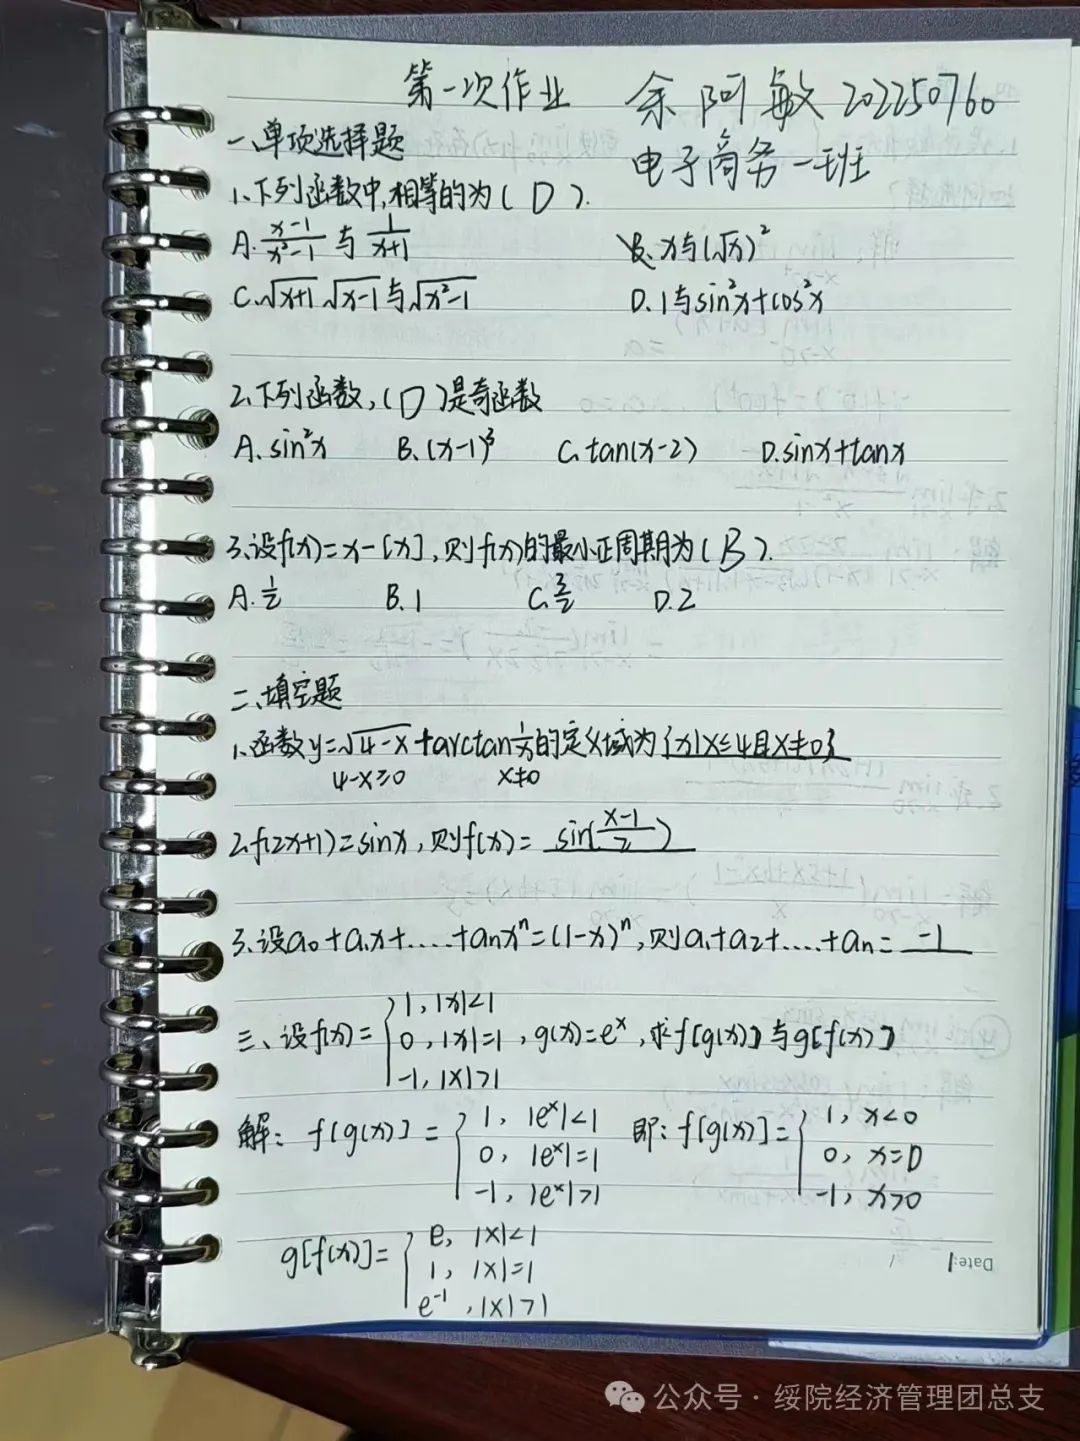 第一次作业 余阿敏 202250760
一、单项选择题 电子商务一班
1、下列函数中,相等的为( D ).
A. \frac{x-1}{x^2-1} 与 \frac{1}{x+1} B. x与(√x)^2
C. √(x+1) √(x-1) 与 √(x^2-1) D. 1与sin^2x+cos^2x
2、下列函数,( D )是奇函数
A. sin^2x B. (x-1)^3 C. tan(x-2) D. sinx+tanx
3、设f(x)=x-[x],则f(x)的最小正周期为( B ).
A. \frac{1}{2} B. 1 C. \frac{3}{2} D. 2
二、填空题
1、函数y=√(4-x)+arctan\frac{1}{x}的定义域为{x|x≤4且x≠0}
4-x≥0 x≠0
2、f(2x+1)=sinx,则f(x)= sin(\frac{x-1}{2})
3、设a_0+a_1x+....+a_nx^n=(1-x)^n,则a_1+a_2+....+a_n= -1
三、设f(x)= { 1, |x|<1
0, |x|=1 ,g(x)=e^x,求f[g(x)]与g[f(x)]
-1, |x|>1
解: f[g(x)] = { 1, |e^x|<1 即: f[g(x)]= { 1, x<0
0, |e^x|=1 0, x=0
-1, |e^x|>1 -1, x>0
g[f(x)]= { e, |x|<1
1, |x|=1
e^{-1}, |x|>1
Date:
公众号·绥院经济管理团总支